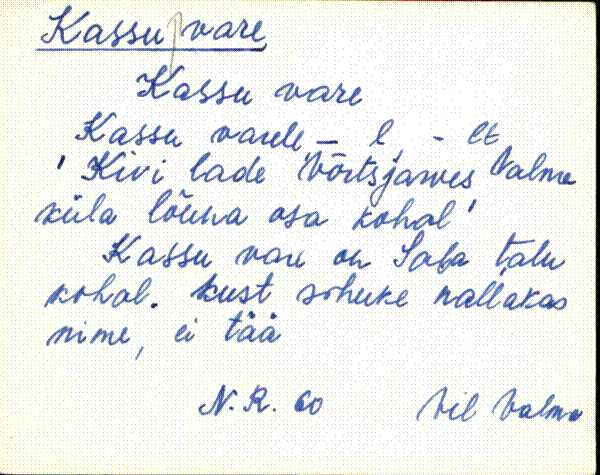 Kassu vare
Kassu vare
Kassu varele – l, – lt
' Kivi lade Võrtsjärves Valma
küla lõuna osa kohal '
Kassu vare on Saba talu
kohal. kust sohuke nallakas
nime, ei tää
N. R. 60 Vil Valma